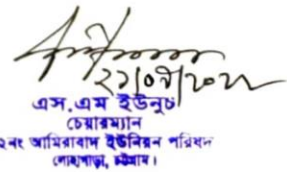 এস.এম ইউনুচ
চেয়ারম্যান
২নং আমিরাবাদ ইউনিয়ন পরিষদ
লোহাগাড়া, চট্টগ্রাম।